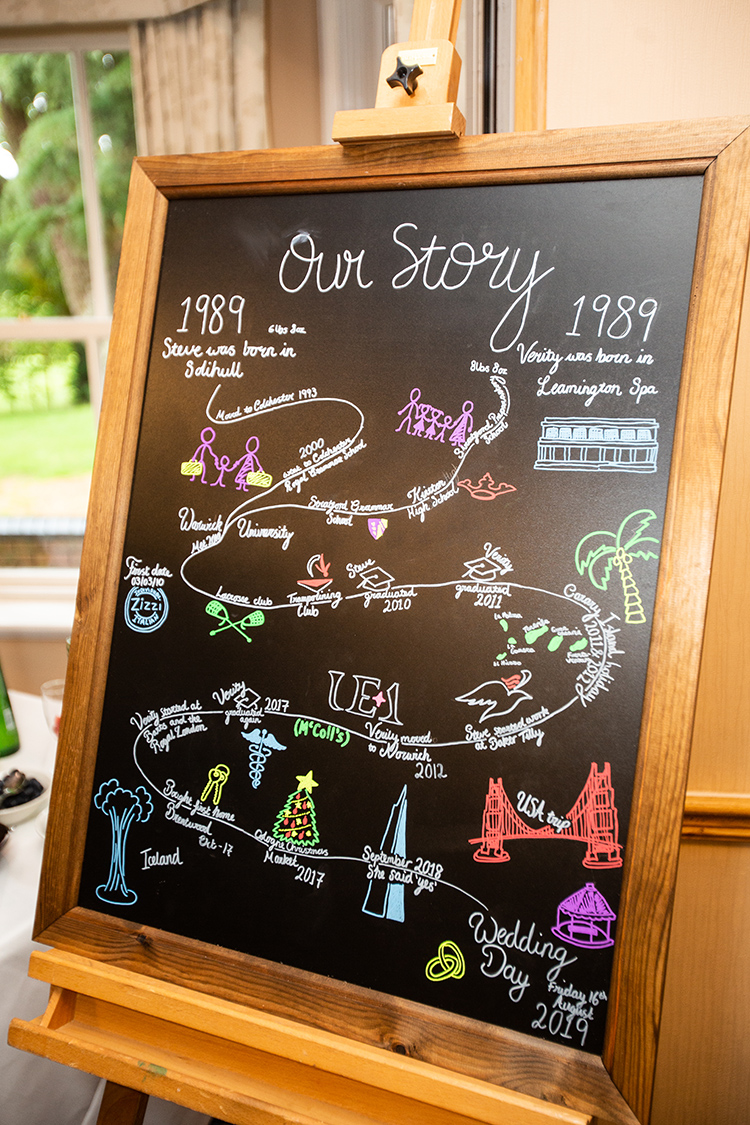 Our Story
1989
6lbs 8oz
Steve was born in
Solihull
1989
Verity was born in
Leamington Spa
8lbs 8oz
Moved to Colchester 1993
2000
went to Colchester
Royal Grammar School
School
Kineton
High School
Stratford Grammar
School
Warwick
University
Met 2008
First date
03/03/10
Zizzi
ITALIAN
Lacrosse club
Trampolining
Club
Steve
graduated
2010
Verity
graduated
2011
Canary Island holiday
2011 & 2012
La Palma
Tenerife
La Gomera
El Hierro
Gran Canaria
Fuerteventura
Steve started work
at Baker Tilly
UEA
Verity moved
to Norwich
2012
(McColl's)
Verity 2017
graduated
again
Verity started at
Barts and the
Royal London
Bought first home
Brentwood
Oct - 17
Iceland
Cologne Christmas
Market
2017
September 2018
She said 'yes'
USA trip
Wedding
Day
Friday 16th
August
2019